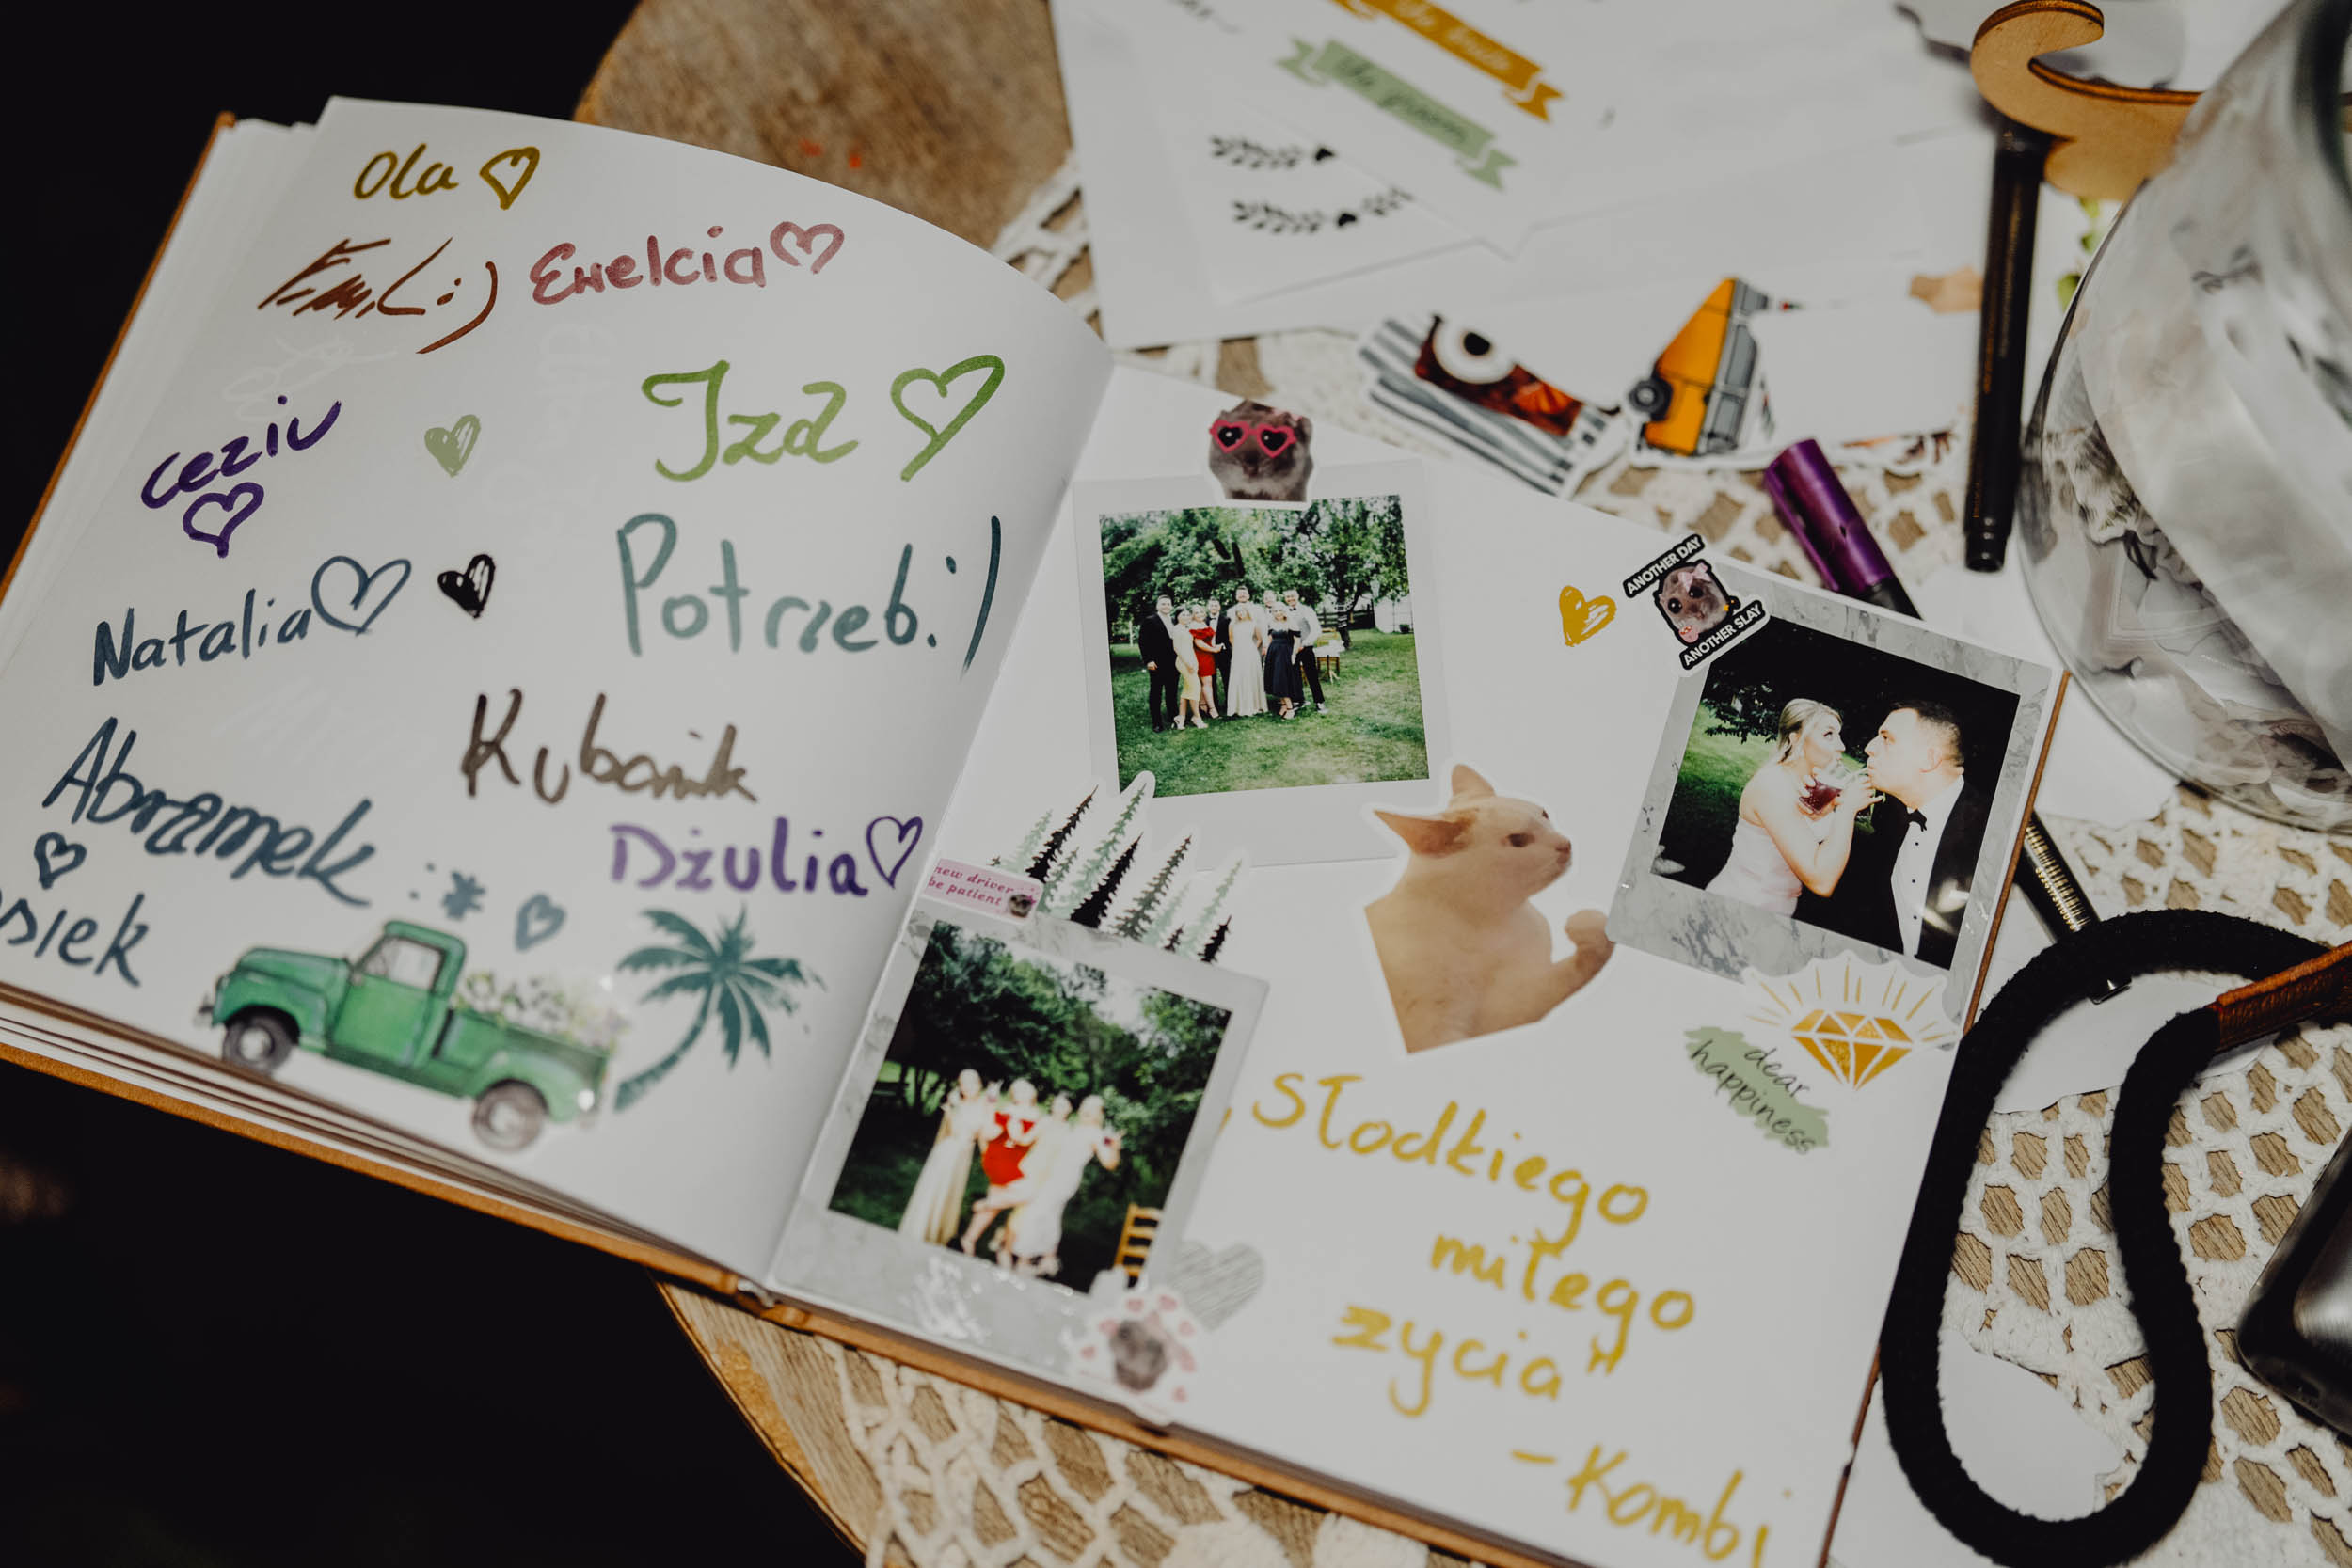 Ola
Emil :)
Ewelcia
Ceziu
Iza
Natalia
Potrzeb :)
Kubanik
Abramek :*
Dżulia
ANOTHER DAY
ANOTHER SLAY
new driver
be patient
dear
happiness
, Słodkiego
miłego
życia"
- Kombi